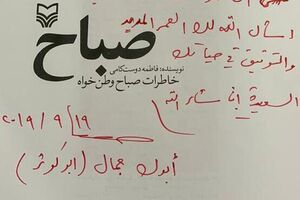 أسأل الله لك العمر المديد
والتوفيق في حياتك
السعيدة إن شاء الله
صباح
نویسنده: فاطمه دوست‌کامی
خاطرات صباح وطن‌خواه
٢٠١٩/٩/١٩
أبوك جمال (ابو كوثر)